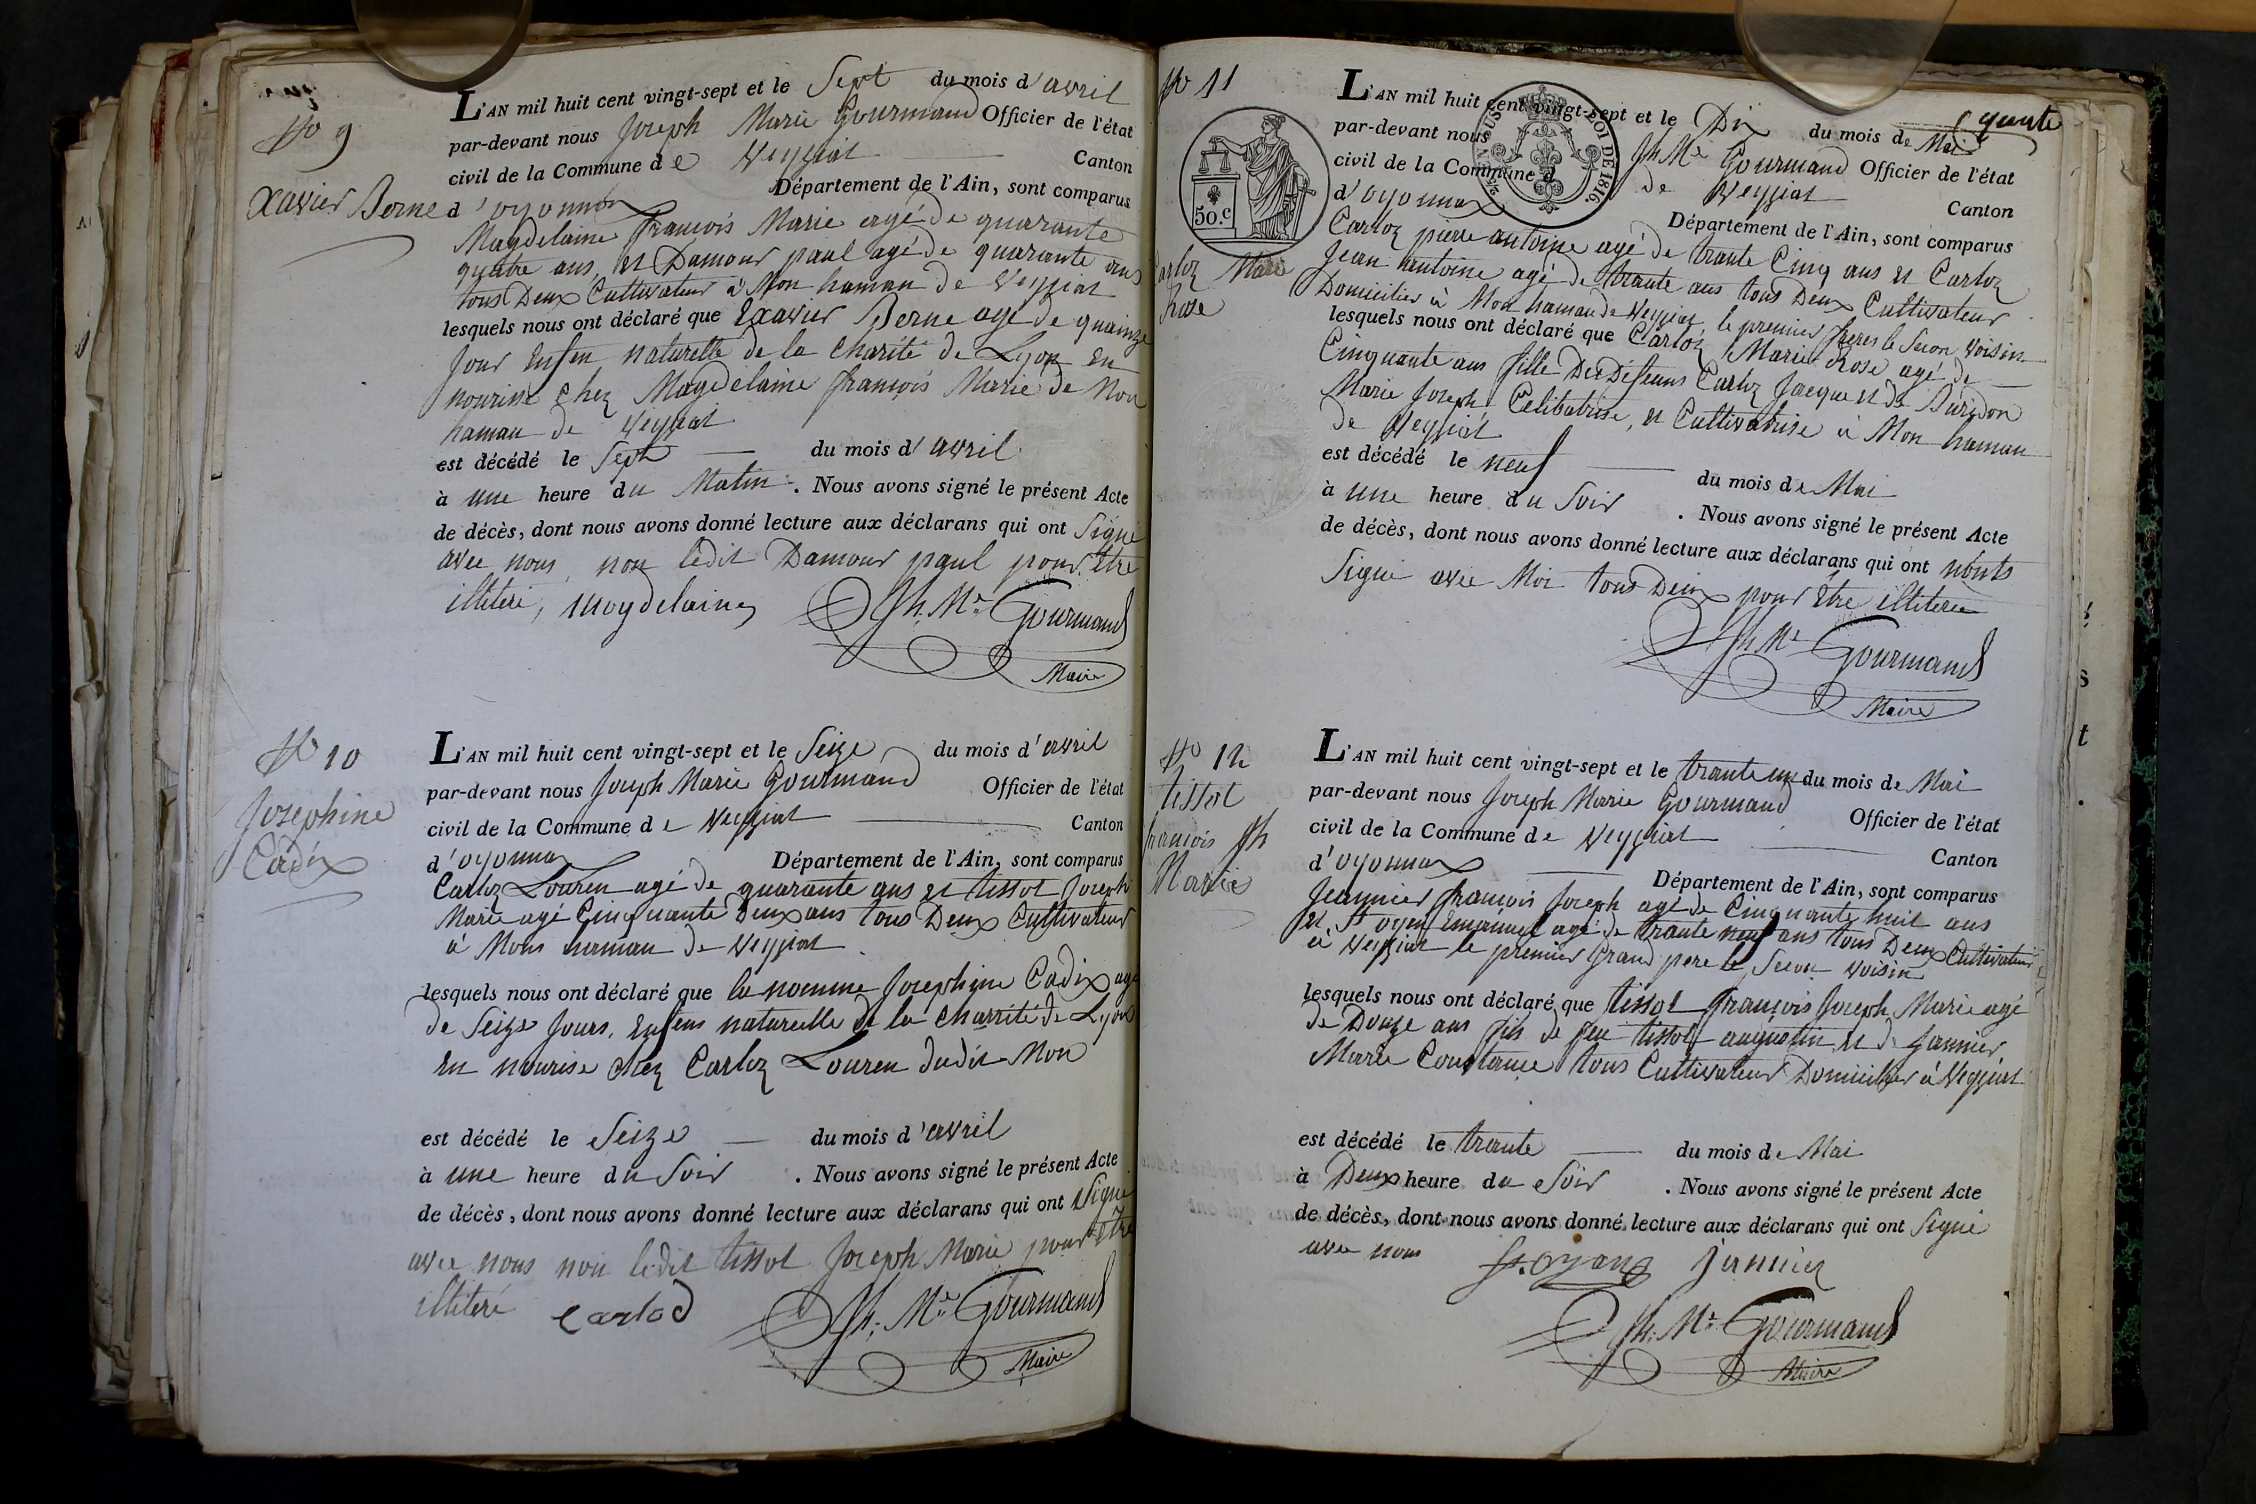 No 9
Xavier Berne
L'AN mil huit cent vingt-sept et le Sept du mois d'avril
par-devant nous Joseph Marie Gourmand Officier de l'état
civil de la Commune de Veyziat Canton
d'oyonnax Département de l'Ain, sont comparus
Magdelaine francois Marie agé de quarante
quatre ans, et Damour paul agé de quarante ans
tous Deux Cultivateur à Mon hamau de Veyziat
lesquels nous ont déclaré que Exavier Berne agé de quainze
Jour Enfen naturelle de la Charité de Lyon En
nourisse chez Magdelaine francois Marie de Mon
hamau de Veyziat
est décédé le Sept du mois d'avril
à une heure du Matin. Nous avons signé le présent Acte
de décès, dont nous avons donné lecture aux déclarans qui ont Signé
avec nous, non ledit Damour paul pour être
illiteré, Magdelaine Jh. Me. Gourmand
Maire
No 10
Josephine
Cadix
L'AN mil huit cent vingt-sept et le Seize du mois d'avril
par-devant nous Joseph Marie Gourmand Officier de l'état
civil de la Commune de Veyziat Canton
d'oyonnax Département de l'Ain, sont comparus
Carloz Louren agé de quarante ans et tissot Joseph
Marie agé Cinquante Deux ans tous Deux Cultivateur
à Mons hamau de Veyziat
lesquels nous ont déclaré que la nomme Josephine Cadix agé
de Seize Jours, Enfens naturelle de la Charrité de Lyon
En nourise chez Carloz Louren dudit Mon
est décédé le Seize du mois d'avril
à une heure du Soir. Nous avons signé le présent Acte
de décès, dont nous avons donné lecture aux déclarans qui ont Signé
avec nous non ledit tissot Joseph Marie pour être
illiteré Carlod Jh. Me. Gourmand
Maire
No 11
50.c
Carloz Marie
Rose
LOI DE 1816.
quante
L'AN mil huit cent vingt-sept et le Dix du mois de Mai
par-devant nous Jh Me Gourmand Officier de l'état
civil de la Commune de Veyziat Canton
d'oyonnax Département de l'Ain, sont comparus
Carloz pierre antoine agé de trante Cinq ans et Carloz
Jean antoine agé de trante ans tous Deux Cultivateur
Domicilier à Mon hamau de Veyziat, le premier freres le Secon Voisin
lesquels nous ont déclaré que Carloz Marie Rose agé de
Cinquante ans fille De Défeuns Carloz Jacque et de Buridon
Marie Joseph, Celibatrise, et Cultivatrise à Mon hamau
de Veyziat
est décédé le neuf du mois de Mai
à une heure du Soir. Nous avons signé le présent Acte
de décès, dont nous avons donné lecture aux déclarans qui ont nonts
Signé avec Moi tous Deux pour Etre illiteree
Jh Me Gourmand
Maire
No 12
tissot
francois Jh
Marie
L'AN mil huit cent vingt-sept et le trante un du mois de Mai
par-devant nous Joseph Marie Gourmand Officier de l'état
civil de la Commune de Veyziat Canton
d'oyonnax Département de l'Ain, sont comparus
Jeannier francois Joseph agé de Cinquante huit ans
et St oyen Emanuel agé de trante neuf ans tous Deux Cultivateur
à Veyziat le premier Grand pere le Secon Voisin
lesquels nous ont déclaré que tissot francois Joseph Marie agé
de Douze ans fils de feu tissot augustin et de Jannier
Marie Constance tous Cultivateur Domicilier à Veyziat
est décédé le trante du mois de Mai
à Deux heure du Soir. Nous avons signé le présent Acte
de décès, dont nous avons donné lecture aux déclarans qui ont Signé
avec nous St. oyang Jennier
Jh. Me. Gourmand
Maire